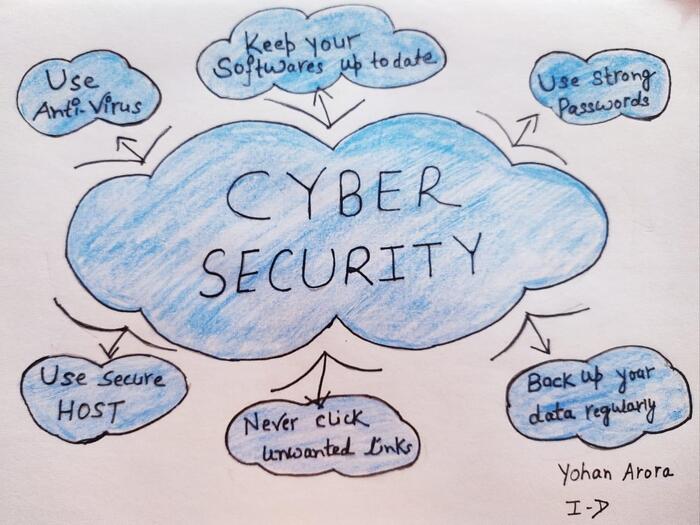 Keep your
Softwares up to date
Use
Anti-Virus
Use Strong
Passwords
CYBER
SECURITY
Use Secure
HOST
Never click
unwanted links
Back up your
data regularly
Yohan Arora
I-D